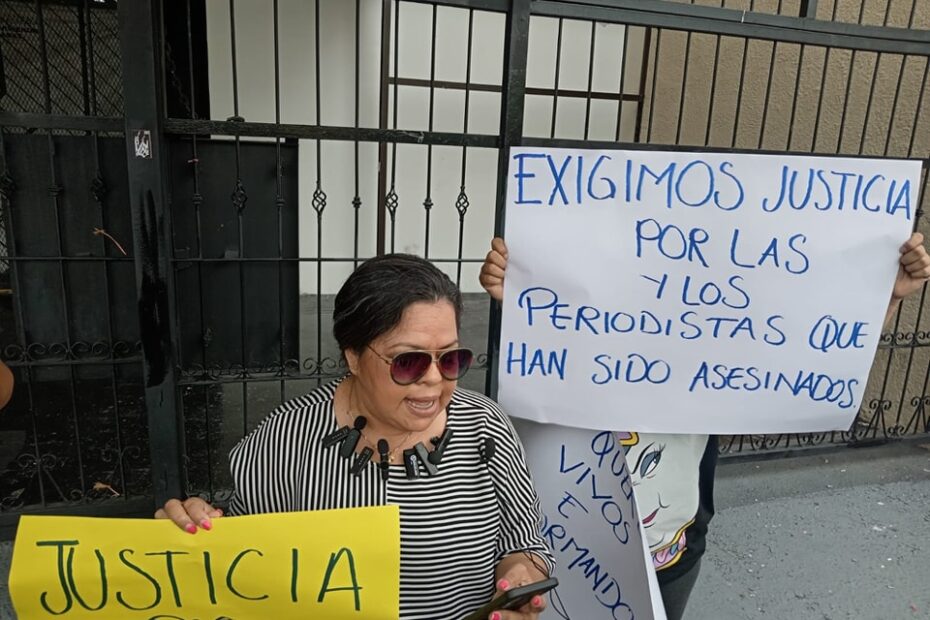 EXIGIMOS JUSTICIA
POR LAS
Y LOS
PERIODISTAS QUE
HAN SIDO ASESINADOS.
JUSTICIA
QUE
VIVOS
E